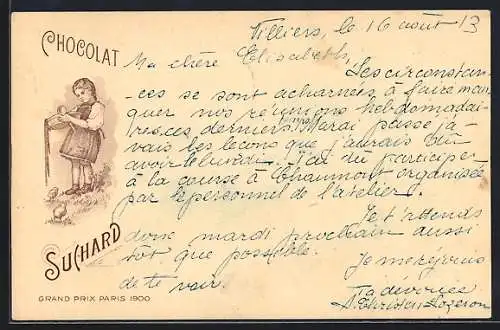 CHOCOLAT
Villiers, le 16 août 13
Ma chère Elisabeth,
Les circonstan-
ces se sont acharnées à faire man-
quer nos réunions hebdomadai-
res, ces derniers temps. Mardi passé j'a-
vais les leçons que j'aurais dû
avoir le lundi. J'ai dû participer
à la course à Chaumont organisée
par le personnel de l'atelier.
Je t'attends
donc mardi prochain aussi
tôt que possible.
Je me réjouis
de te voir.
Ta dévouée
SUCHARD
GRAND PRIX PARIS 1900